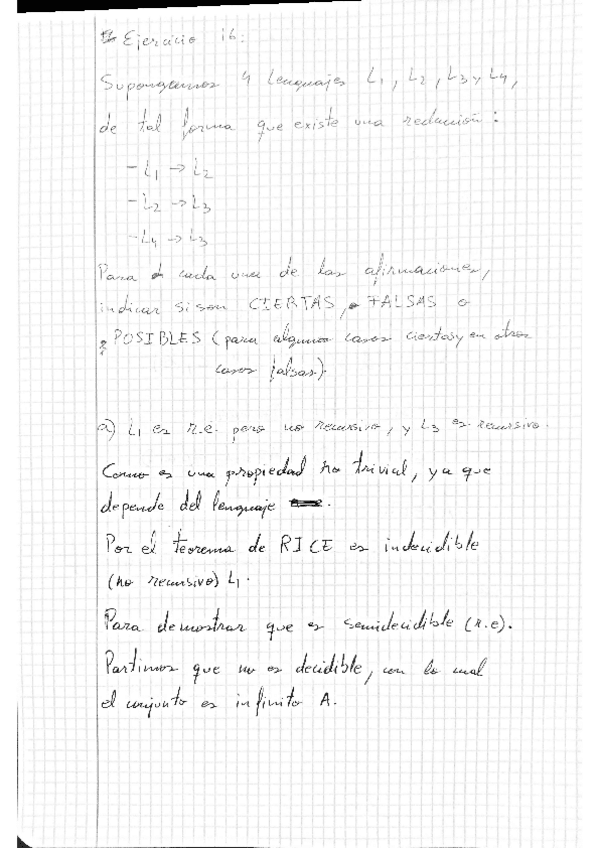 Ejercicio 16:
Supongamos 4 lenguajes L1, L2, L3 y L4,
de tal forma que existe una reducción:
- L1 → L2
- L2 → L3
- L4 → L3
Para cada una de las afirmaciones,
indicar si son CIERTAS, FALSAS o
POSIBLES (para algunos casos ciertas y en otros
casos falsas).
a) L1 es r.e. pero no recursivo, y L3 es recursivo.
Como es una propiedad no trivial, ya que
depende del lenguaje.
Por el teorema de RICE es indecidible
(no recursivo) L1.
Para demostrar que es semidecidible (r.e).
Partimos que no es decidible, con lo cual
el conjunto es infinito A.